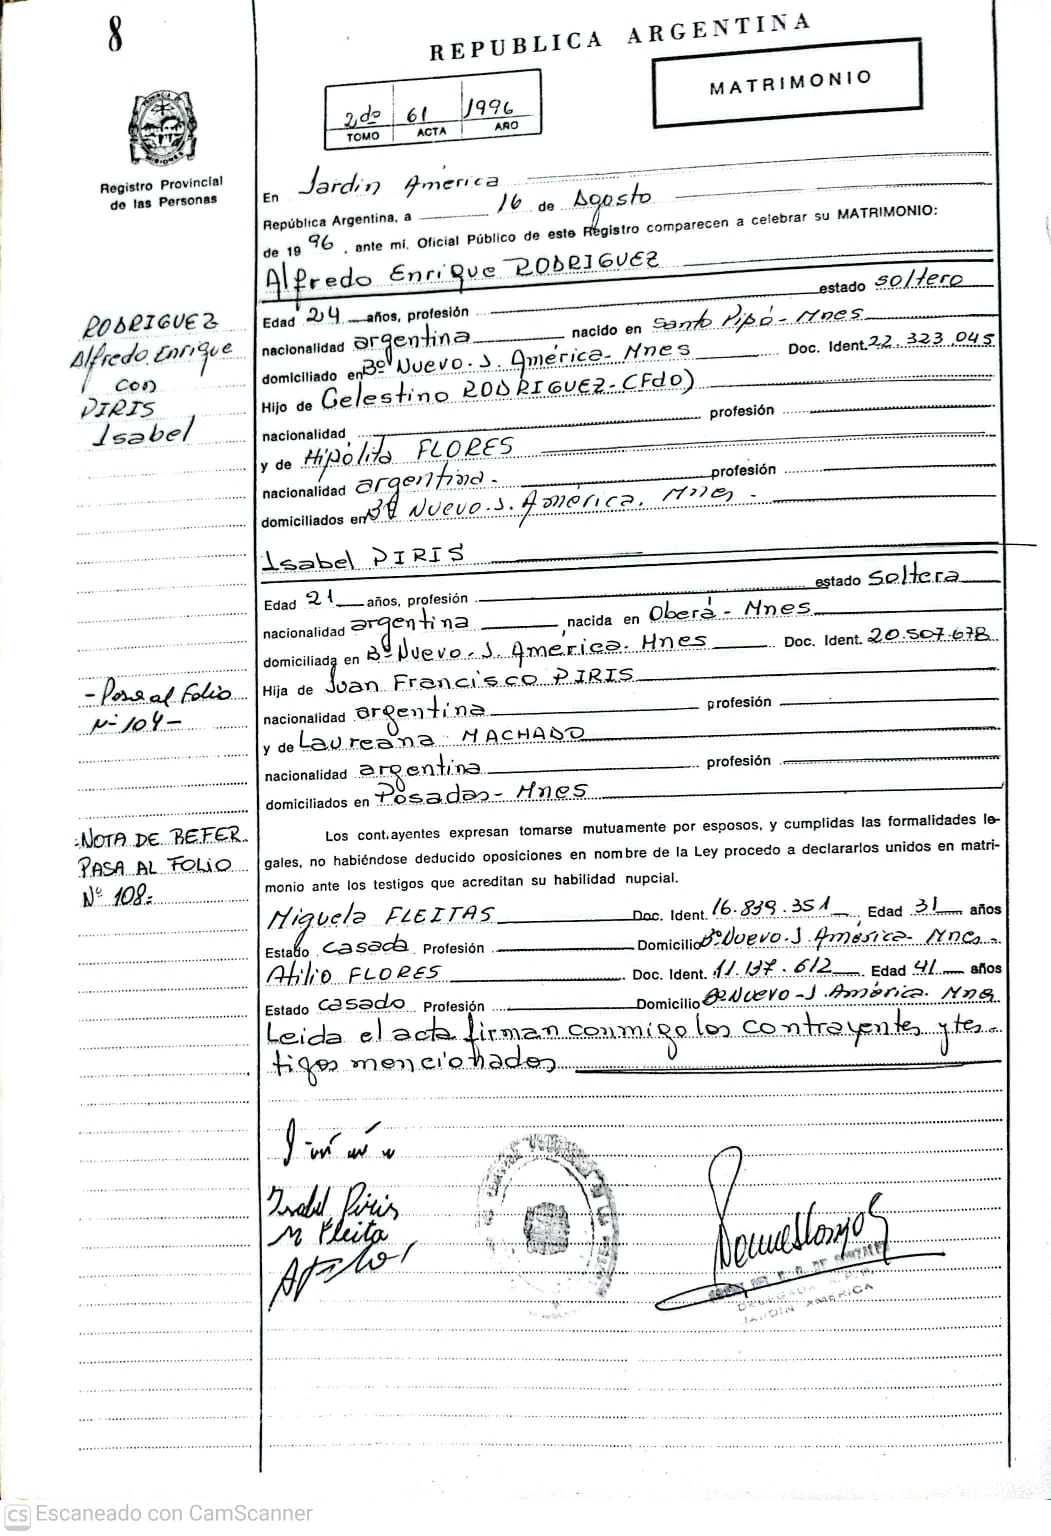 8
REPUBLICA ARGENTINA
MATRIMONIO
2do 61 1996
TOMO ACTA AÑO
Registro Provincial
de las Personas
En Jardín América
República Argentina, a 16 de Agosto
de 1996, ante mí. Oficial Público de este Registro comparecen a celebrar su MATRIMONIO:
Alfredo Enrique RODRIGUEZ
Edad 24 años, profesión estado soltero
nacionalidad argentina nacido en Santo Pipó - Mnes
domiciliado en Bº Nuevo. J. América - Mnes Doc. Ident. 22.323.045
Hijo de Celestino RODRIGUEZ - (Fdo)
nacionalidad profesión
y de Hipólita FLORES
nacionalidad argentina. profesión
domiciliados en Bº Nuevo. J. América. Mnes -
RODRIGUEZ
Alfredo Enrique
con
PIRIS
Isabel
Isabel PIRIS
Edad 21 años, profesión estado soltera
nacionalidad argentina nacida en Oberá - Mnes
domiciliada en Bº Nuevo. J. América. Mnes Doc. Ident. 20.507.678
Hija de Juan Francisco PIRIS
nacionalidad argentina profesión
y de Laureana MACHADO
nacionalidad argentina profesión
domiciliados en Posadas - Mnes
- Pase al Folio
Nº 104 -
Los cont.ayentes expresan tomarse mutuamente por esposos, y cumplidas las formalidades le-
gales, no habiéndose deducido oposiciones en nombre de la Ley procedo a declararlos unidos en matri-
monio ante los testigos que acreditan su habilidad nupcial.
NOTA DE REFER.
PASA AL FOLIO
Nº 108.
Miguela FLEITAS Doc. Ident. 16.839.351 Edad 31 años
Estado casada Profesión Domicilio Bº Nuevo. J. América - Mnes -
Atilio FLORES Doc. Ident. 11.137.612 Edad 41 años
Estado casado Profesión Domicilio Bº Nuevo - J. América. Mnes
Leida el acta firman conmigo los contrayentes y tes-
tigos mencionados
Isabel Piris
M Fleita
DELEGADA
JARDIN AMERICA
CS Escaneado con CamScanner